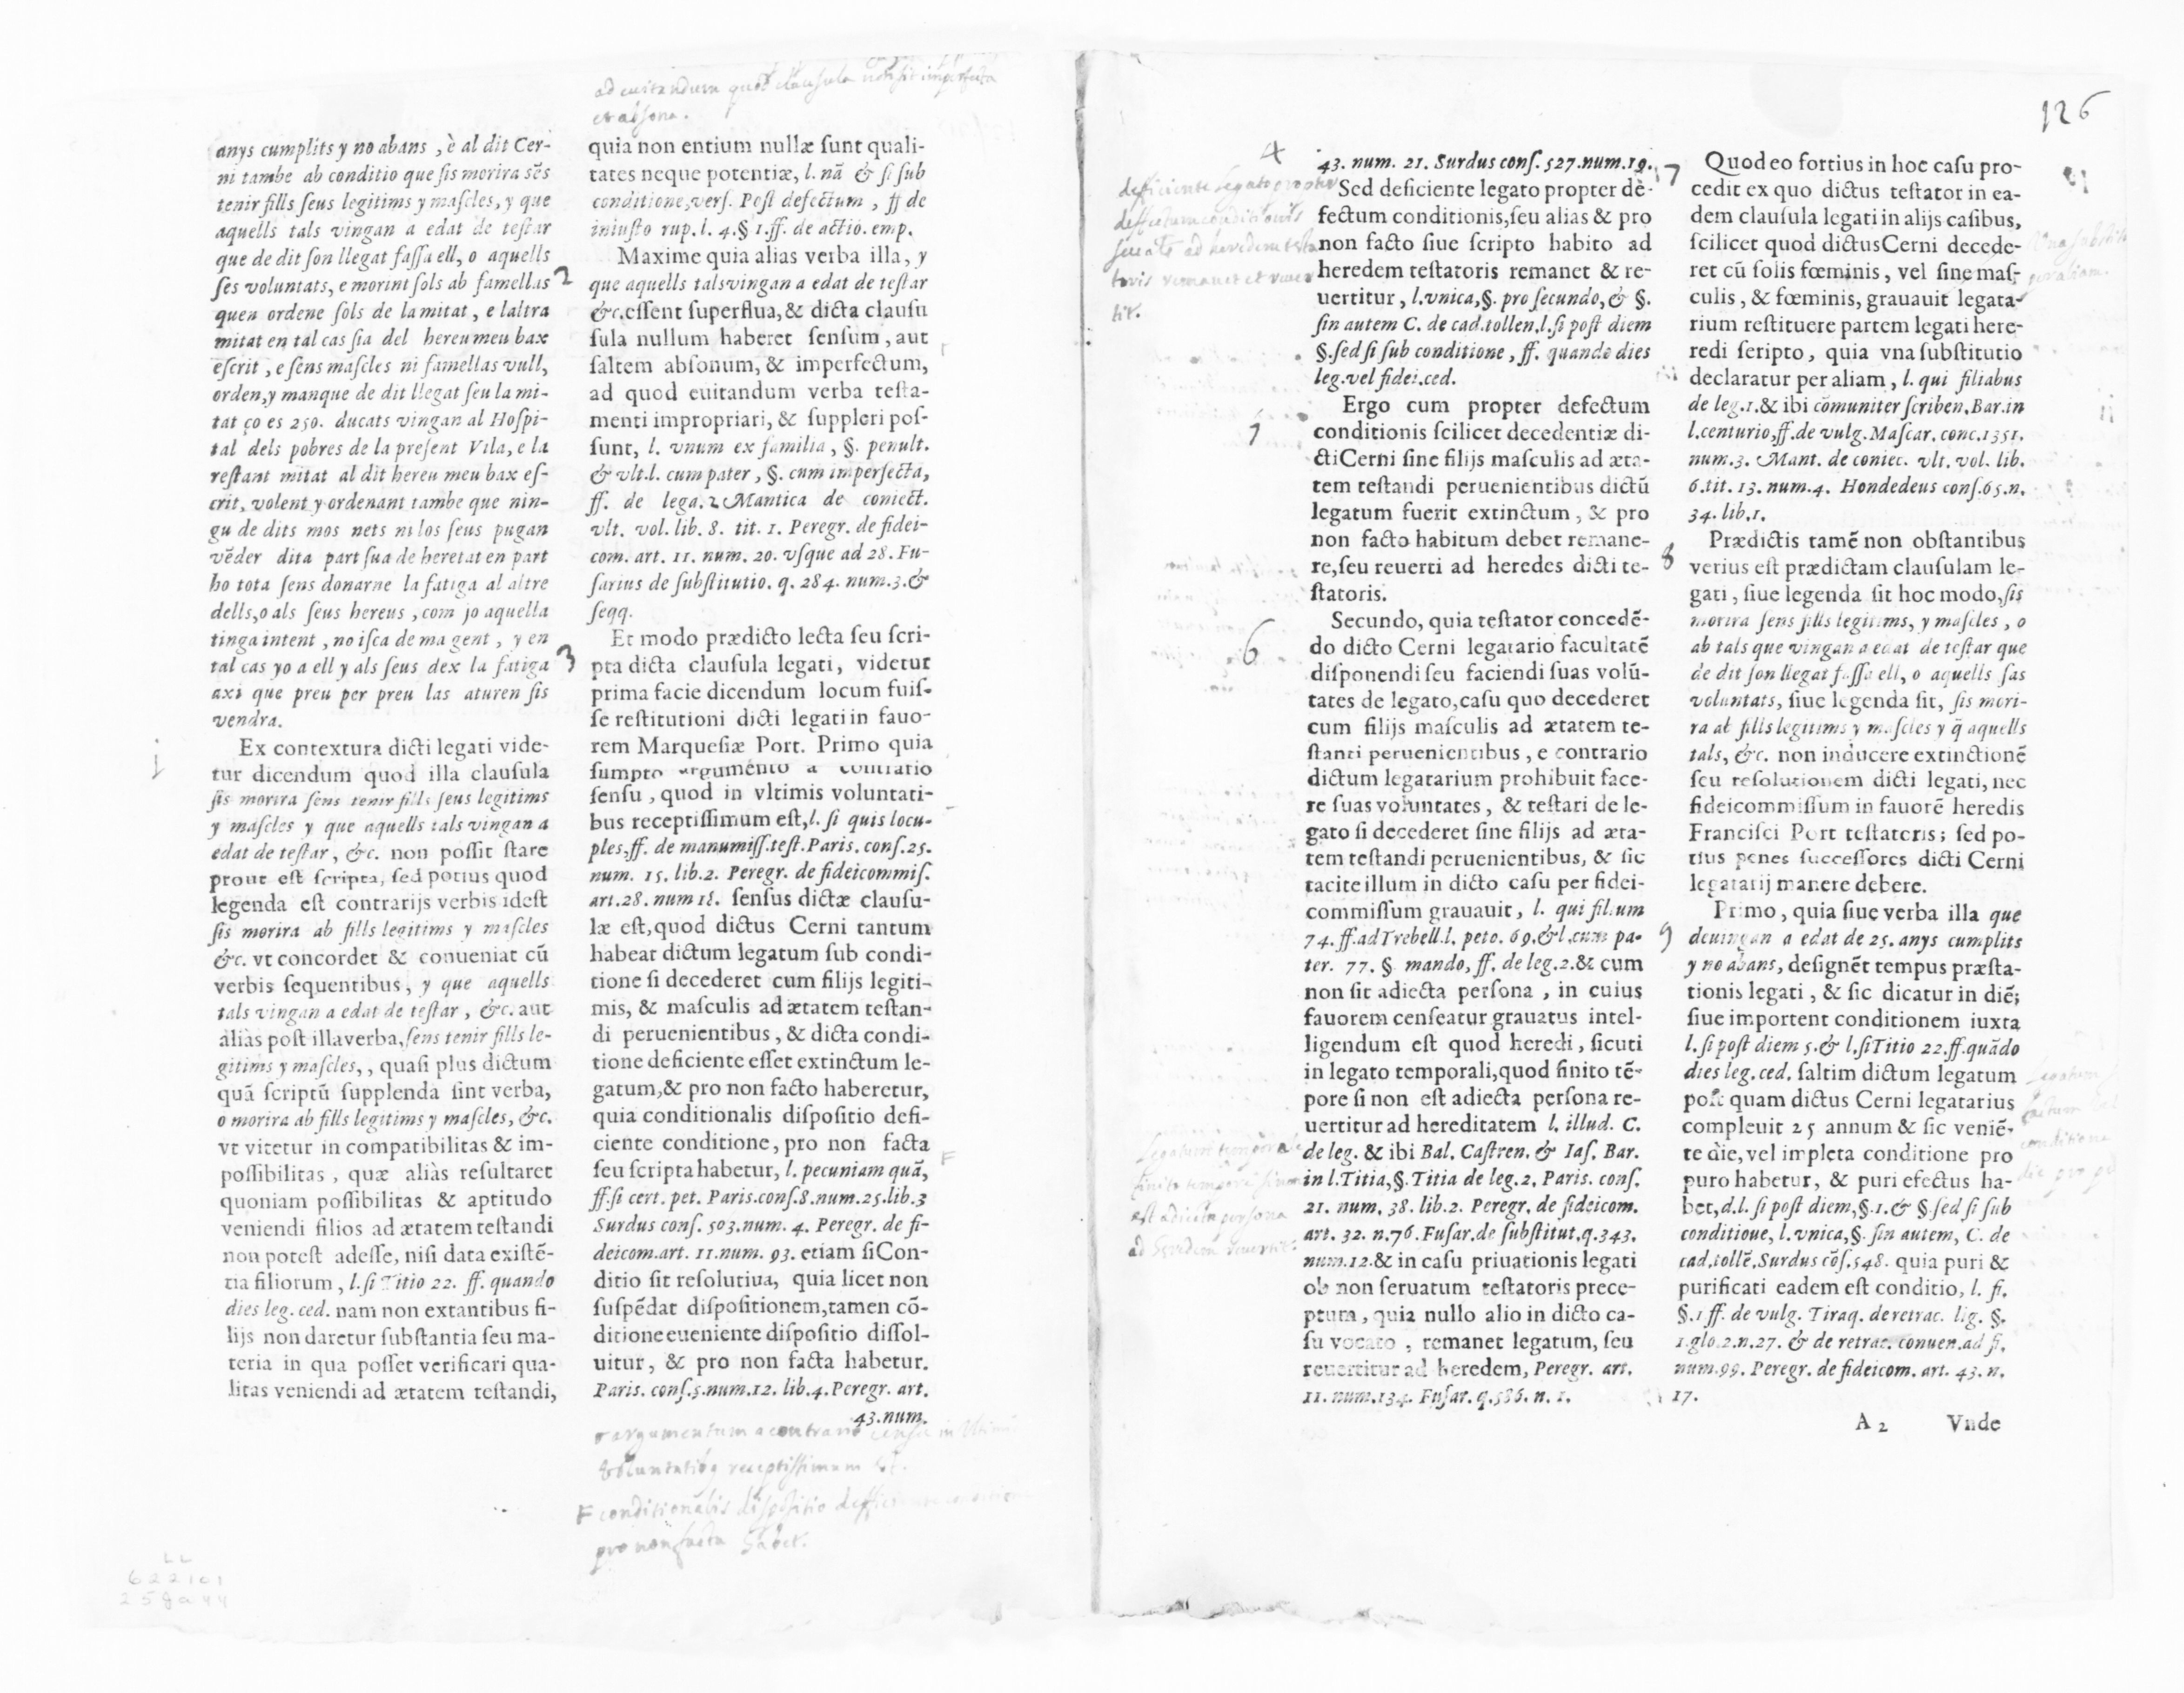 ad euitandum quod clausula non sit imperfecta
et absona.
anys cumplits y no abans, è al dit Cer-
ni tambe ab conditio que sis morira sẽs
tenir fills seus legitims y mascles, y que
aquells tals vingan a edat de testar
que de dit son llegat fassa ell, o aquells
ses voluntats, e morint sols ab famellas
quen ordene sols de la mitat, e laltra
mitat en tal cas sia del hereu meu bax
escrit, e sens mascles ni famellas vull,
orden, y manque de dit llegat seu la mi-
tat ço es 250. ducats vingan al Hospi-
tal dels pobres de la present Vila, e la
restant mitat al dit hereu meu bax es-
crit, volent y ordenant tambe que nin-
gu de dits mos nets ni los seus pugan
vẽder dita part sua de heretat en part
ho tota sens donarne la fatiga al altre
dells, o als seus hereus, com jo aquella
tinga intent, no isca de ma gent, y en
tal cas yo a ell y als seus dex la fatiga
axi que preu per preu las aturen sis
vendra.
1
Ex contextura dicti legati vide-
tur dicendum quod illa clausula
sis morira sens tenir fills seus legitims
y mascles y que aquells tals vingan a
edat de testar, &c. non possit stare
prout est scripta, sed potius quod
legenda est contrarijs verbis idest
sis morira ab fills legitims y mascles
&c. vt concordet & conueniat cũ
verbis sequentibus, y que aquells
tals vingan a edat de testar, &c. aut
aliàs post illa verba, sens tenir fills le-
gitims y mascles,, quasi plus dictum
quã scriptũ supplenda sint verba,
o morira ab fills legitims y mascles, &c.
vt vitetur in compatibilitas & im-
possibilitas, quæ aliàs resultaret
quoniam possibilitas & aptitudo
veniendi filios ad ætatem testandi
non potest adesse, nisi data existẽ-
tia filiorum, l. si Titio 22. ff. quando
dies leg. ced. nam non extantibus fi-
lijs non daretur substantia seu ma-
teria in qua posset verificari qua-
litas veniendi ad ætatem testandi,
quia non entium nullæ sunt quali-
tates neque potentiæ, l. nã & si sub
conditione, vers. Post defectum, ff de
iniusto rup. l. 4. § 1. ff. de actio. emp.
2
Maxime quia alias verba illa, y
que aquells tals vingan a edat de testar
&c. essent superflua, & dicta clausu
sula nullum haberet sensum, aut
saltem absonum, & imperfectum,
ad quod euitandum verba testa-
menti impropriari, & suppleri pos-
sunt, l. vnum ex familia, §. penult.
& vlt. l. cum pater, §. cum imperfecta,
ff. de lega. 2 Mantica de coniect.
vlt. vol. lib. 8. tit. 1. Peregr. de fidei-
com. art. 11. num. 20. vsque ad 28. Fu-
sarius de substitutio. q. 284. num. 3. &
seqq.
3
Et modo prædicto lecta seu scri-
pta dicta clausula legati, videtur
prima facie dicendum locum fuis-
se restitutioni dicti legati in fauo-
rem Marquesiæ Port. Primo quia
sumpto argumẽto a contrario
sensu, quod in vltimis voluntati-
bus receptissimum est, l. si quis locu-
ples, ff. de manumiss. test. Paris. cons. 25.
num. 15. lib. 2. Peregr. de fideicommis.
art. 28. num 18. sensus dictæ clausu-
læ est, quod dictus Cerni tantum
habeat dictum legatum sub condi-
tione si decederet cum filijs legiti-
mis, & masculis ad ætatem testan-
di peruenientibus, & dicta condi-
tione deficiente esset extinctum le-
gatum, & pro non facto haberetur,
quia conditionalis dispositio defi-
ciente conditione, pro non facta
seu scripta habetur, l. pecuniam quã,
ff. si cert. pet. Paris. cons. 8. num. 25. lib. 3
Surdus cons. 503. num. 4. Peregr. de fi-
deicom. art. 11. num. 93. etiam si Con-
ditio sit resolutiua, quia licet non
suspẽdat dispositionem, tamen cõ-
ditione eueniente dispositio dissol-
uitur, & pro non facta habetur.
Paris. cons. 5. num. 12. lib. 4. Peregr. art.
43. num.
argumentum a contrario sensu in
receptissimum
F conditionalis dispositio
pro non facta habet.
126
4
deficiente legato propter
deffectum condicionis
ad heredem
toris remanet et
tit.
43. num. 21. Surdus cons. 527. num. 19.
Sed deficiente legato propter dè-
fectum conditionis, seu alias & pro
non facto siue scripto habito ad
heredem testatoris remanet & re-
uertitur, l. vnica, §. pro secundo, & §.
sin autem C. de cad. tollen. l. si post diem
§. sed si sub conditione, ff. quando dies
leg. vel fidei. ced.
Ergo cum propter defectum
conditionis scilicet decedentiæ di-
cti Cerni sine filijs masculis ad æta-
tem testandi peruenientibus dictũ
legatum fuerit extinctum, & pro
non facto habitum debet remane-
re, seu reuerti ad heredes dicti te-
statoris.
6
Secundo, quia testator concedẽ-
do dicto Cerni legatario facultatẽ
disponendi seu faciendi suas volũ-
tates de legato, casu quo decederet
cum filijs masculis ad ætatem te-
stanti peruenientibus, e contrario
dictum legatarium prohibuit face-
re suas voluntates, & testari de le-
gato si decederet sine filijs ad æta-
tem testandi peruenientibus, & sic
tacite illum in dicto casu per fidei-
commissum grauauit, l. qui filium
74. ff. ad Trebell. l. peto. 69. & l. cum pa-
ter. 77. § mando, ff. de leg. 2. & cum
non sit adiecta persona, in cuius
fauorem censeatur grauatus intel-
ligendum est quod heredi, sicuti
in legato temporali, quod finito tẽ-
pore si non est adiecta persona re-
uertitur ad hereditatem l. illud. C.
de leg. & ibi Bal. Castren. & Ias. Bar.
in l. Titia, §. Titia de leg. 2. Paris. cons.
21. num. 38. lib. 2. Peregr. de fideicom.
art. 32. n. 76. Fusar. de substitut. q. 343.
num. 12. & in casu priuationis legati
ob non seruatum testatoris prece-
ptum, quia nullo alio in dicto ca-
su vocato, remanet legatum, seu
reuertitur ad heredem, Peregr. art.
11. num. 134. Fusar. q. 586. n. 1.
legatum temporale
finito tempore si non
est adiecta persona
ad heredem
7
Quod eo fortius in hoc casu pro-
cedit ex quo dictus testator in ea-
dem clausula legati in alijs casibus,
scilicet quod dictus Cerni decede-
ret cũ solis fœminis, vel sine mas-
culis, & fœminis, grauauit legata-
rium restituere partem legati here-
redi scripto, quia vna substitutio
declaratur per aliam, l. qui filiabus
de leg. 1. & ibi cõmuniter scriben. Bar. in
l. centurio, ff. de vulg. Mascar. conc. 1351.
num. 3. Mant. de coniec. vlt. vol. lib.
6. tit. 13. num. 4. Hondedeus cons. 65. n.
34. lib. 1.
8
Prædictis tamẽ non obstantibus
verius est prædictam clausulam le-
gati, siue legenda sit hoc modo, sis
morira sens fills legitims, y mascles, o
ab tals que vingan a edat de testar que
de dit son llegat fassa ell, o aquells sas
voluntats, siue legenda sit, sis mori-
ra ab fills legitims y mascles y q̃ aquells
tals, &c. non inducere extinctionẽ
seu resolutionem dicti legati, nec
fideicommissum in fauorẽ heredis
Francisci Port testatoris; sed po-
tius penes successores dicti Cerni
legatarij manere debere.
9
Primo, quia siue verba illa que
deuingan a edat de 25. anys cumplits
y no abans, designẽt tempus præsta-
tionis legati, & sic dicatur in diẽ;
siue importent conditionem iuxta
l. si post diem 5. & l. si Titio 22. ff. quãdo
dies leg. ced. saltim dictum legatum
post quam dictus Cerni legatarius
compleuit 25 annum & sic veniẽ-
te die, vel impleta conditione pro
puro habetur, & puri efectus ha-
bet, d. l. si post diem, §. 1. & § sed si sub
conditione, l. vnica, §. sin autem, C. de
cad. tollẽ. Surdus cõs. 548. quia puri &
purificati eadem est conditio, l. fi.
§. 1 ff. de vulg. Tiraq. de retrac. lig. §.
1. glo. 2. n. 27. & de retrac. conuen. ad fi.
num. 99. Peregr. de fideicom. art. 43. n.
17.
A 2 Vnde